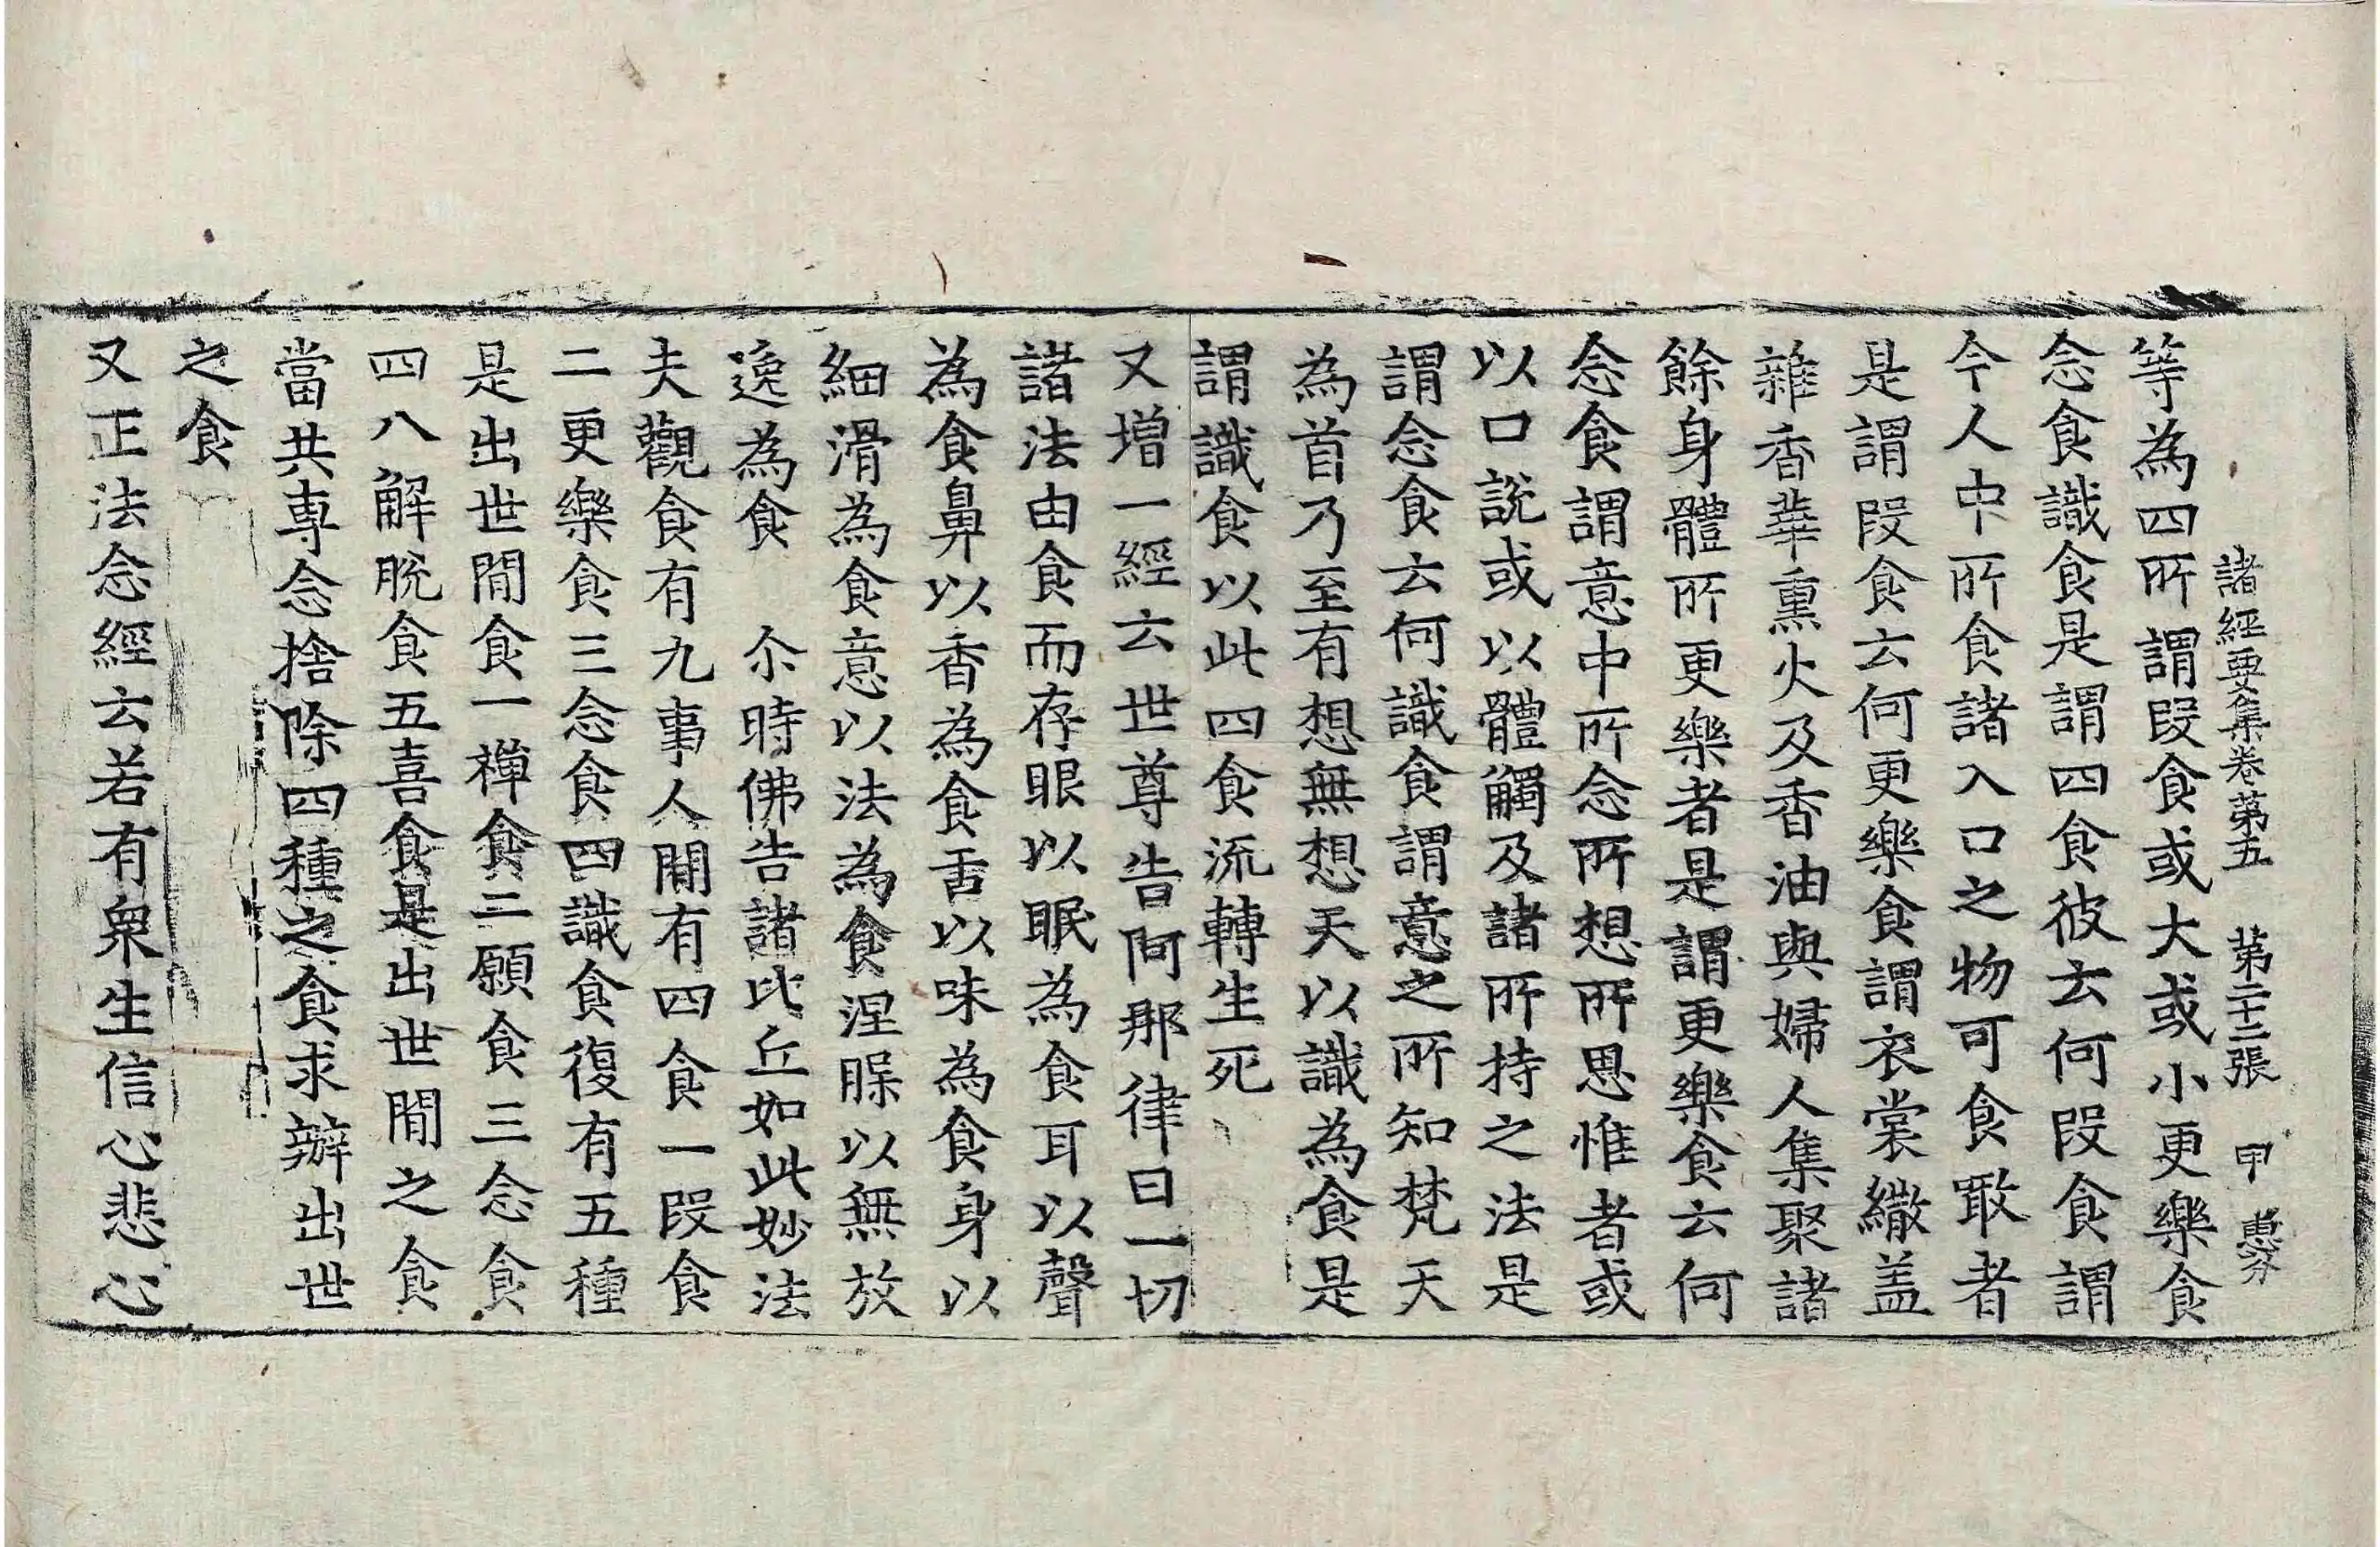 諸經要集卷第五 第二十二張 甲
等為四所謂叚食或大或小更樂食
念食識食是謂四食彼云何叚食謂
今人中所食諸入口之物可食噉者
是謂叚食云何更樂食謂衣裳繖盖
雜香華熏火及香油與婦人集聚諸
餘身體所更樂者是謂更樂食云何
念食謂意中所念所想所思惟者或
以口說或以體觸及諸所持之法是
謂念食云何識食謂意之所知梵天
為首乃至有想無想天以識為食是
謂識食以此四食流轉生死
又增一經云世尊告阿那律曰一切
諸法由食而存眼以眠為食耳以聲
為食鼻以香為食舌以味為食身以
細滑為食意以法為食涅槃以無放
逸為食 尒時佛告諸比丘如此妙法
夫觀食有九事人間有四食一叚食
二更樂食三念食四識食復有五種
是出世間食一禪食二願食三念食
四八解脫食五喜食是出世間之食
當共專念捨除四種之食求辦出世
之食
又正法念經云若有衆生信心悲心